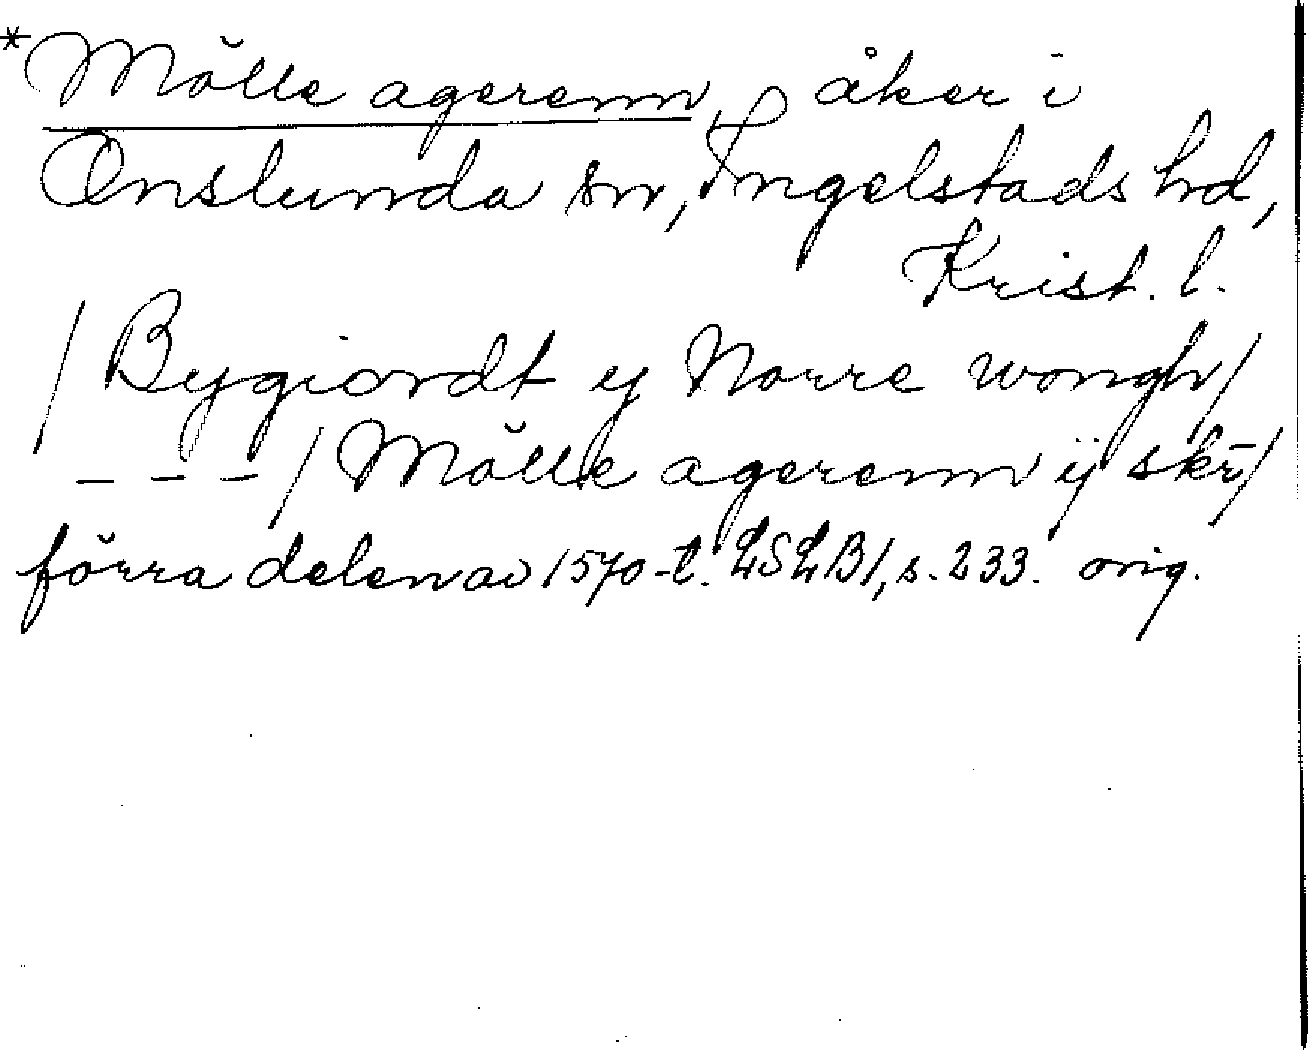 *Mölle agerenn, åker i
Onslunda sn, Ingelstads hd,
Krist. l.
/Bygiordt y Norre wongh/
---/Mölle agerenn ij skr/
förra delen av 1570-t. LSLB1, s. 233. orig.